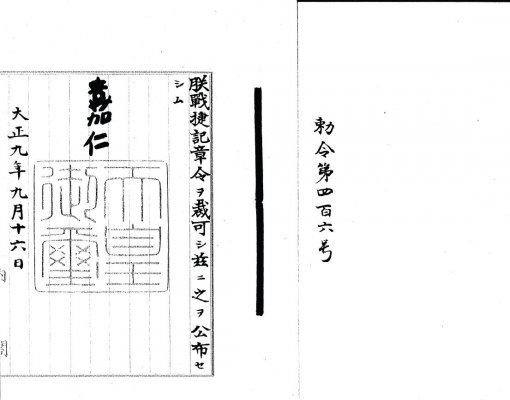 勅令第四百六号
朕戰捷記章令ヲ裁可シ茲ニ之ヲ公布セ
シム
嘉仁
天皇
御璽
大正九年九月十六日
内
閣